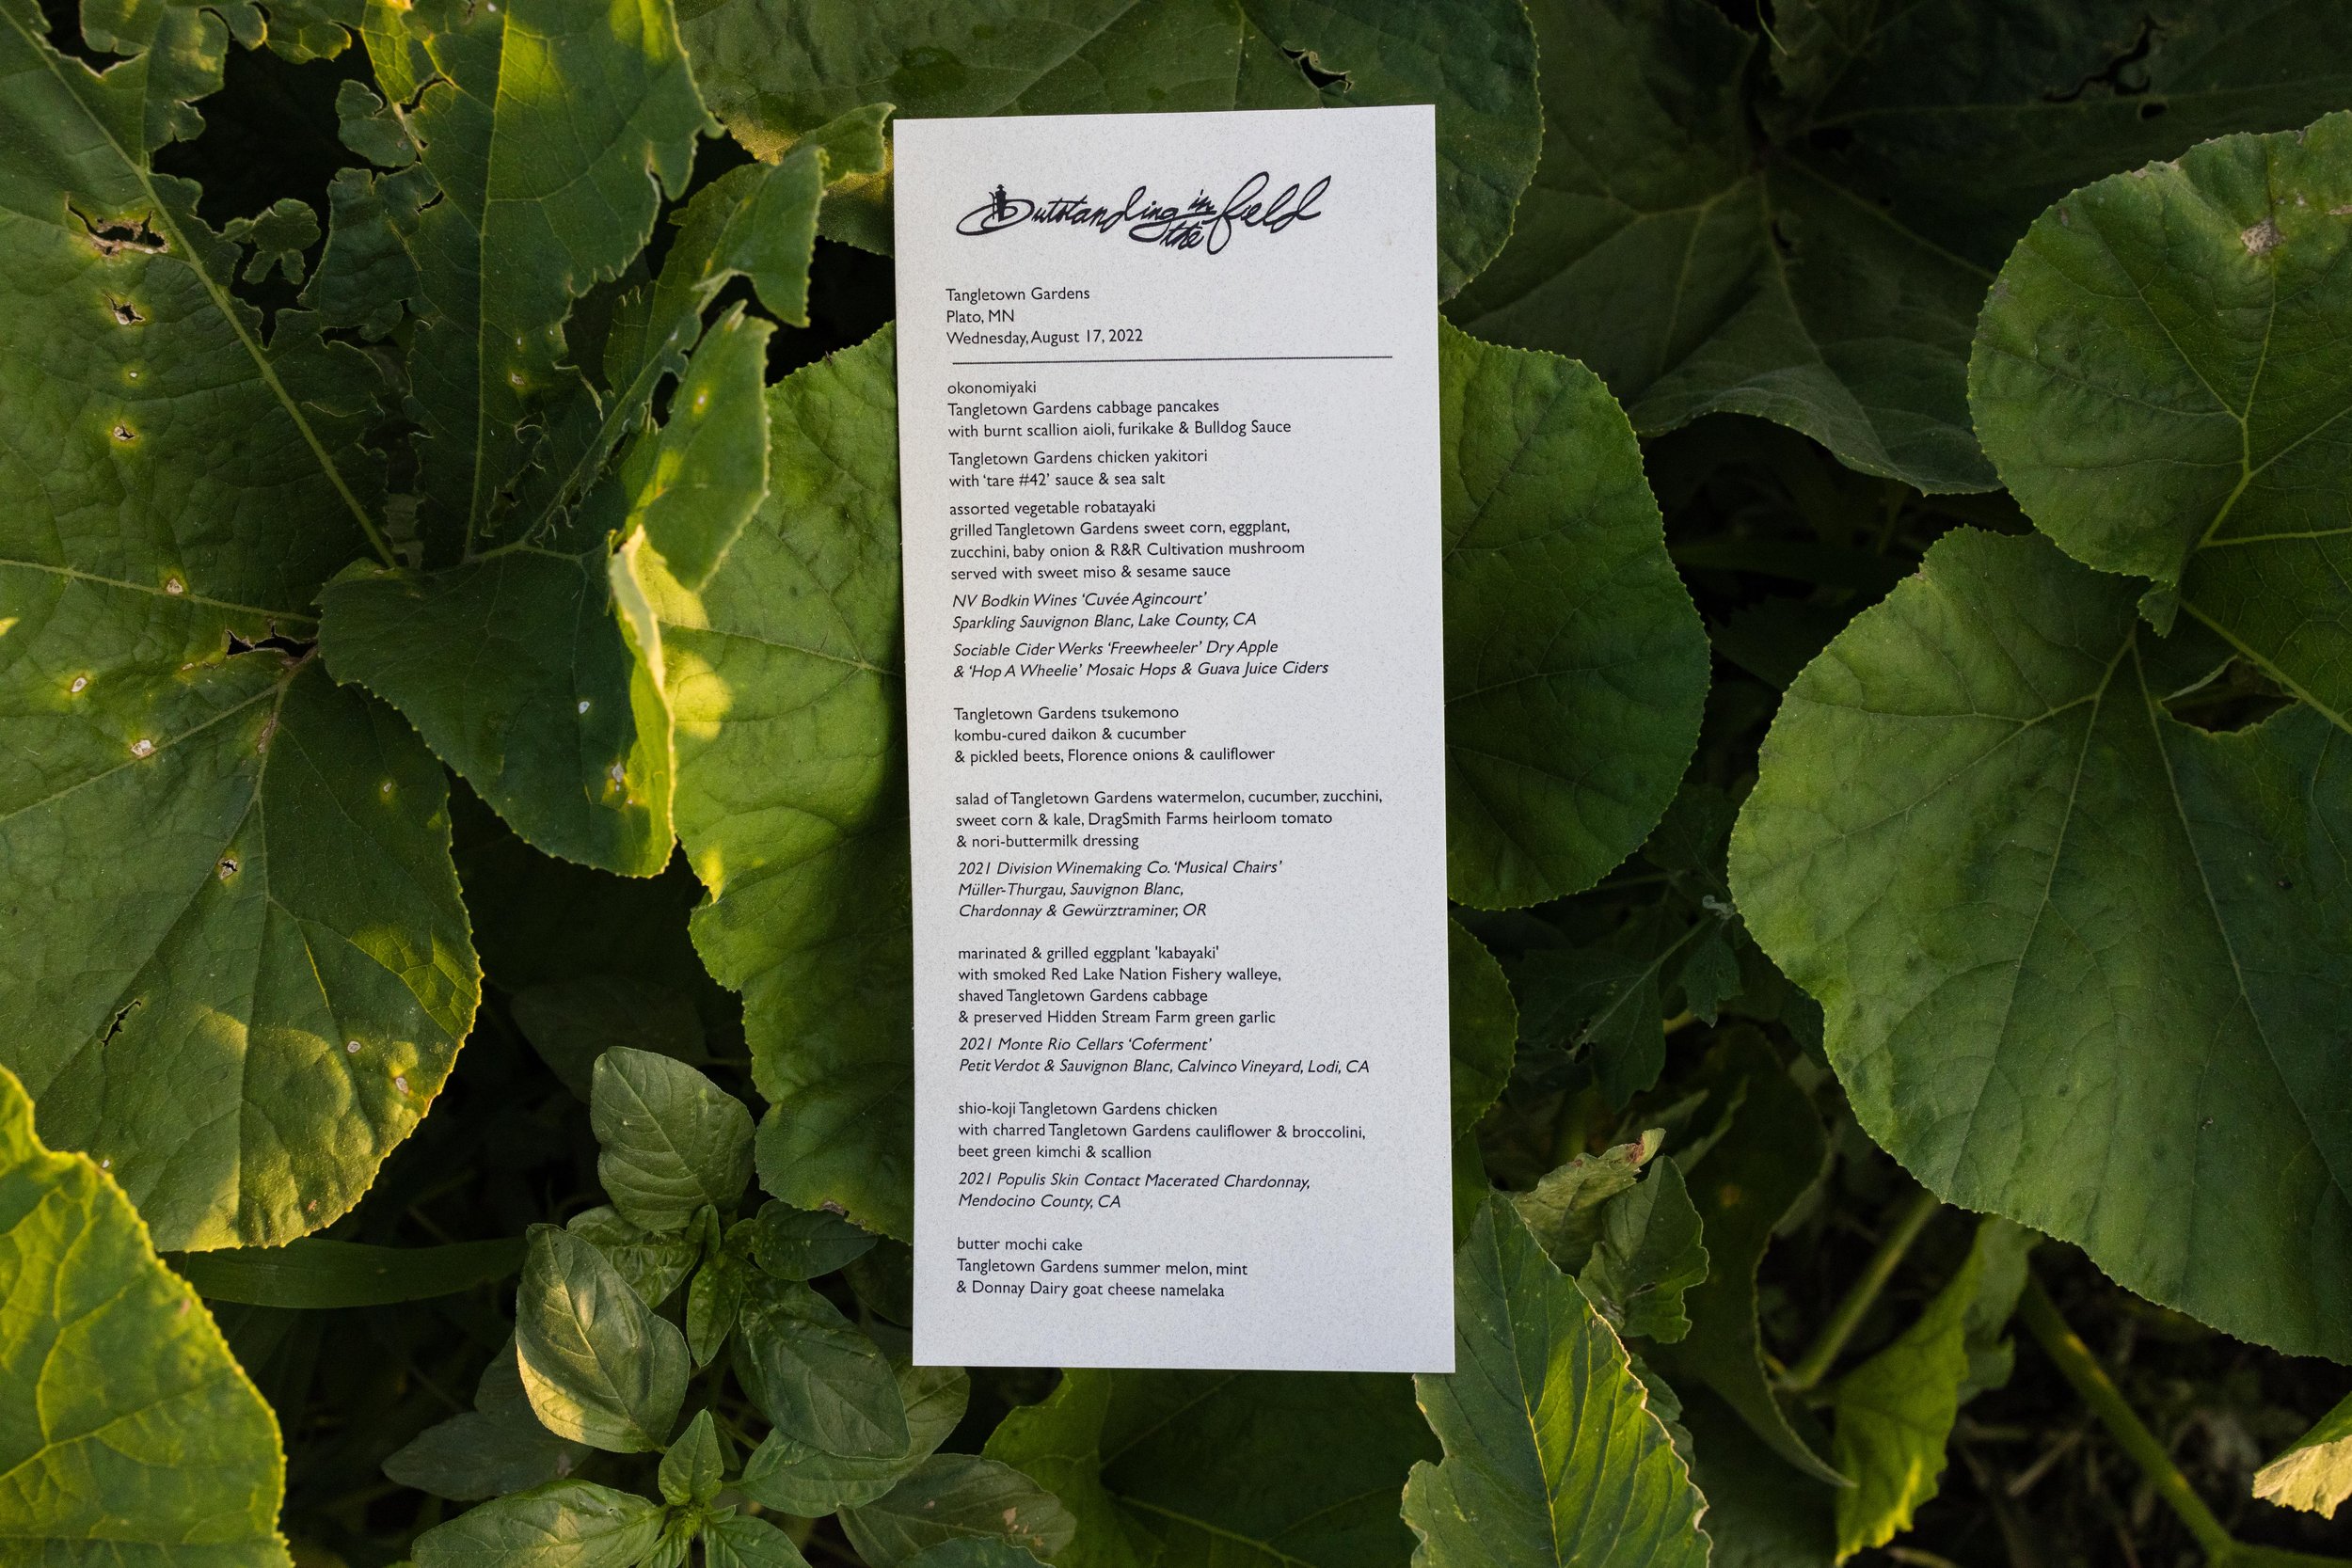 Outstanding in the field
Tangletown Gardens
Plato, MN
Wednesday, August 17, 2022
okonomiyaki
Tangletown Gardens cabbage pancakes
with burnt scallion aioli, furikake & Bulldog Sauce
Tangletown Gardens chicken yakitori
with ‘tare #42’ sauce & sea salt
assorted vegetable robatayaki
grilled Tangletown Gardens sweet corn, eggplant,
zucchini, baby onion & R&R Cultivation mushroom
served with sweet miso & sesame sauce
NV Bodkin Wines ‘Cuvée Agincourt’
Sparkling Sauvignon Blanc, Lake County, CA
Sociable Cider Werks ‘Freewheeler’ Dry Apple
& ‘Hop A Wheelie’ Mosaic Hops & Guava Juice Ciders
Tangletown Gardens tsukemono
kombu-cured daikon & cucumber
& pickled beets, Florence onions & cauliflower
salad of Tangletown Gardens watermelon, cucumber, zucchini,
sweet corn & kale, DragSmith Farms heirloom tomato
& nori-buttermilk dressing
2021 Division Winemaking Co. ‘Musical Chairs’
Müller-Thurgau, Sauvignon Blanc,
Chardonnay & Gewürztraminer, OR
marinated & grilled eggplant 'kabayaki'
with smoked Red Lake Nation Fishery walleye,
shaved Tangletown Gardens cabbage
& preserved Hidden Stream Farm green garlic
2021 Monte Rio Cellars ‘Coferment’
Petit Verdot & Sauvignon Blanc, Calvinco Vineyard, Lodi, CA
shio-koji Tangletown Gardens chicken
with charred Tangletown Gardens cauliflower & broccolini,
beet green kimchi & scallion
2021 Populis Skin Contact Macerated Chardonnay,
Mendocino County, CA
butter mochi cake
Tangletown Gardens summer melon, mint
& Donnay Dairy goat cheese namelaka